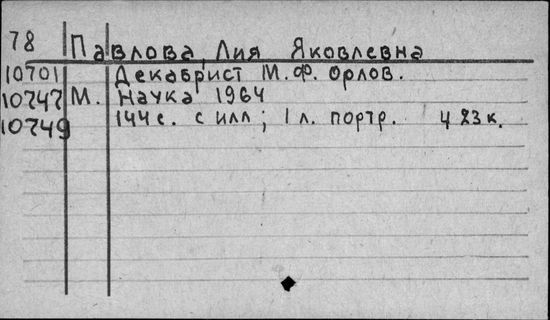 78 Павлова, Лия Яковлевна
10701 Декабрист М.Ф. Орлов.
10747 М. Наука 1964
10749 144 с. с илл; 1 л. портр. 423к.